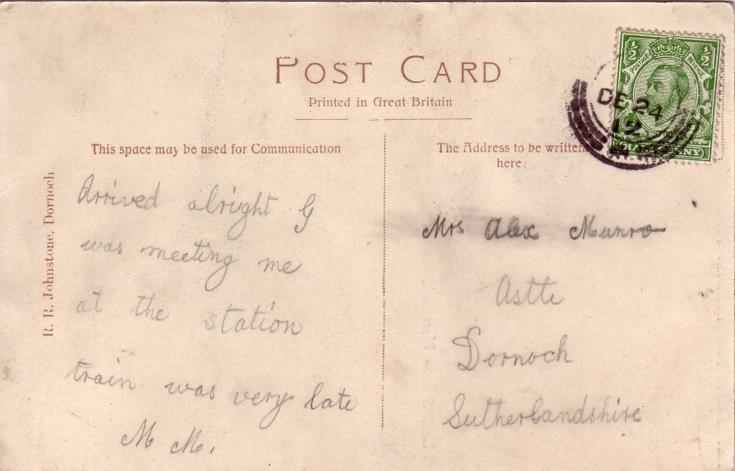 POST CARD
Printed in Great Britain
This space may be used for Communication
The Address to be written
here.
R. R. Johnstone, Dornoch
½ ½
DE 24
12
Arrived alright G
was meeting me
at the station
train was very late
M M.
Mrs Alex Munro
Astle
Dornoch
Sutherlandshire